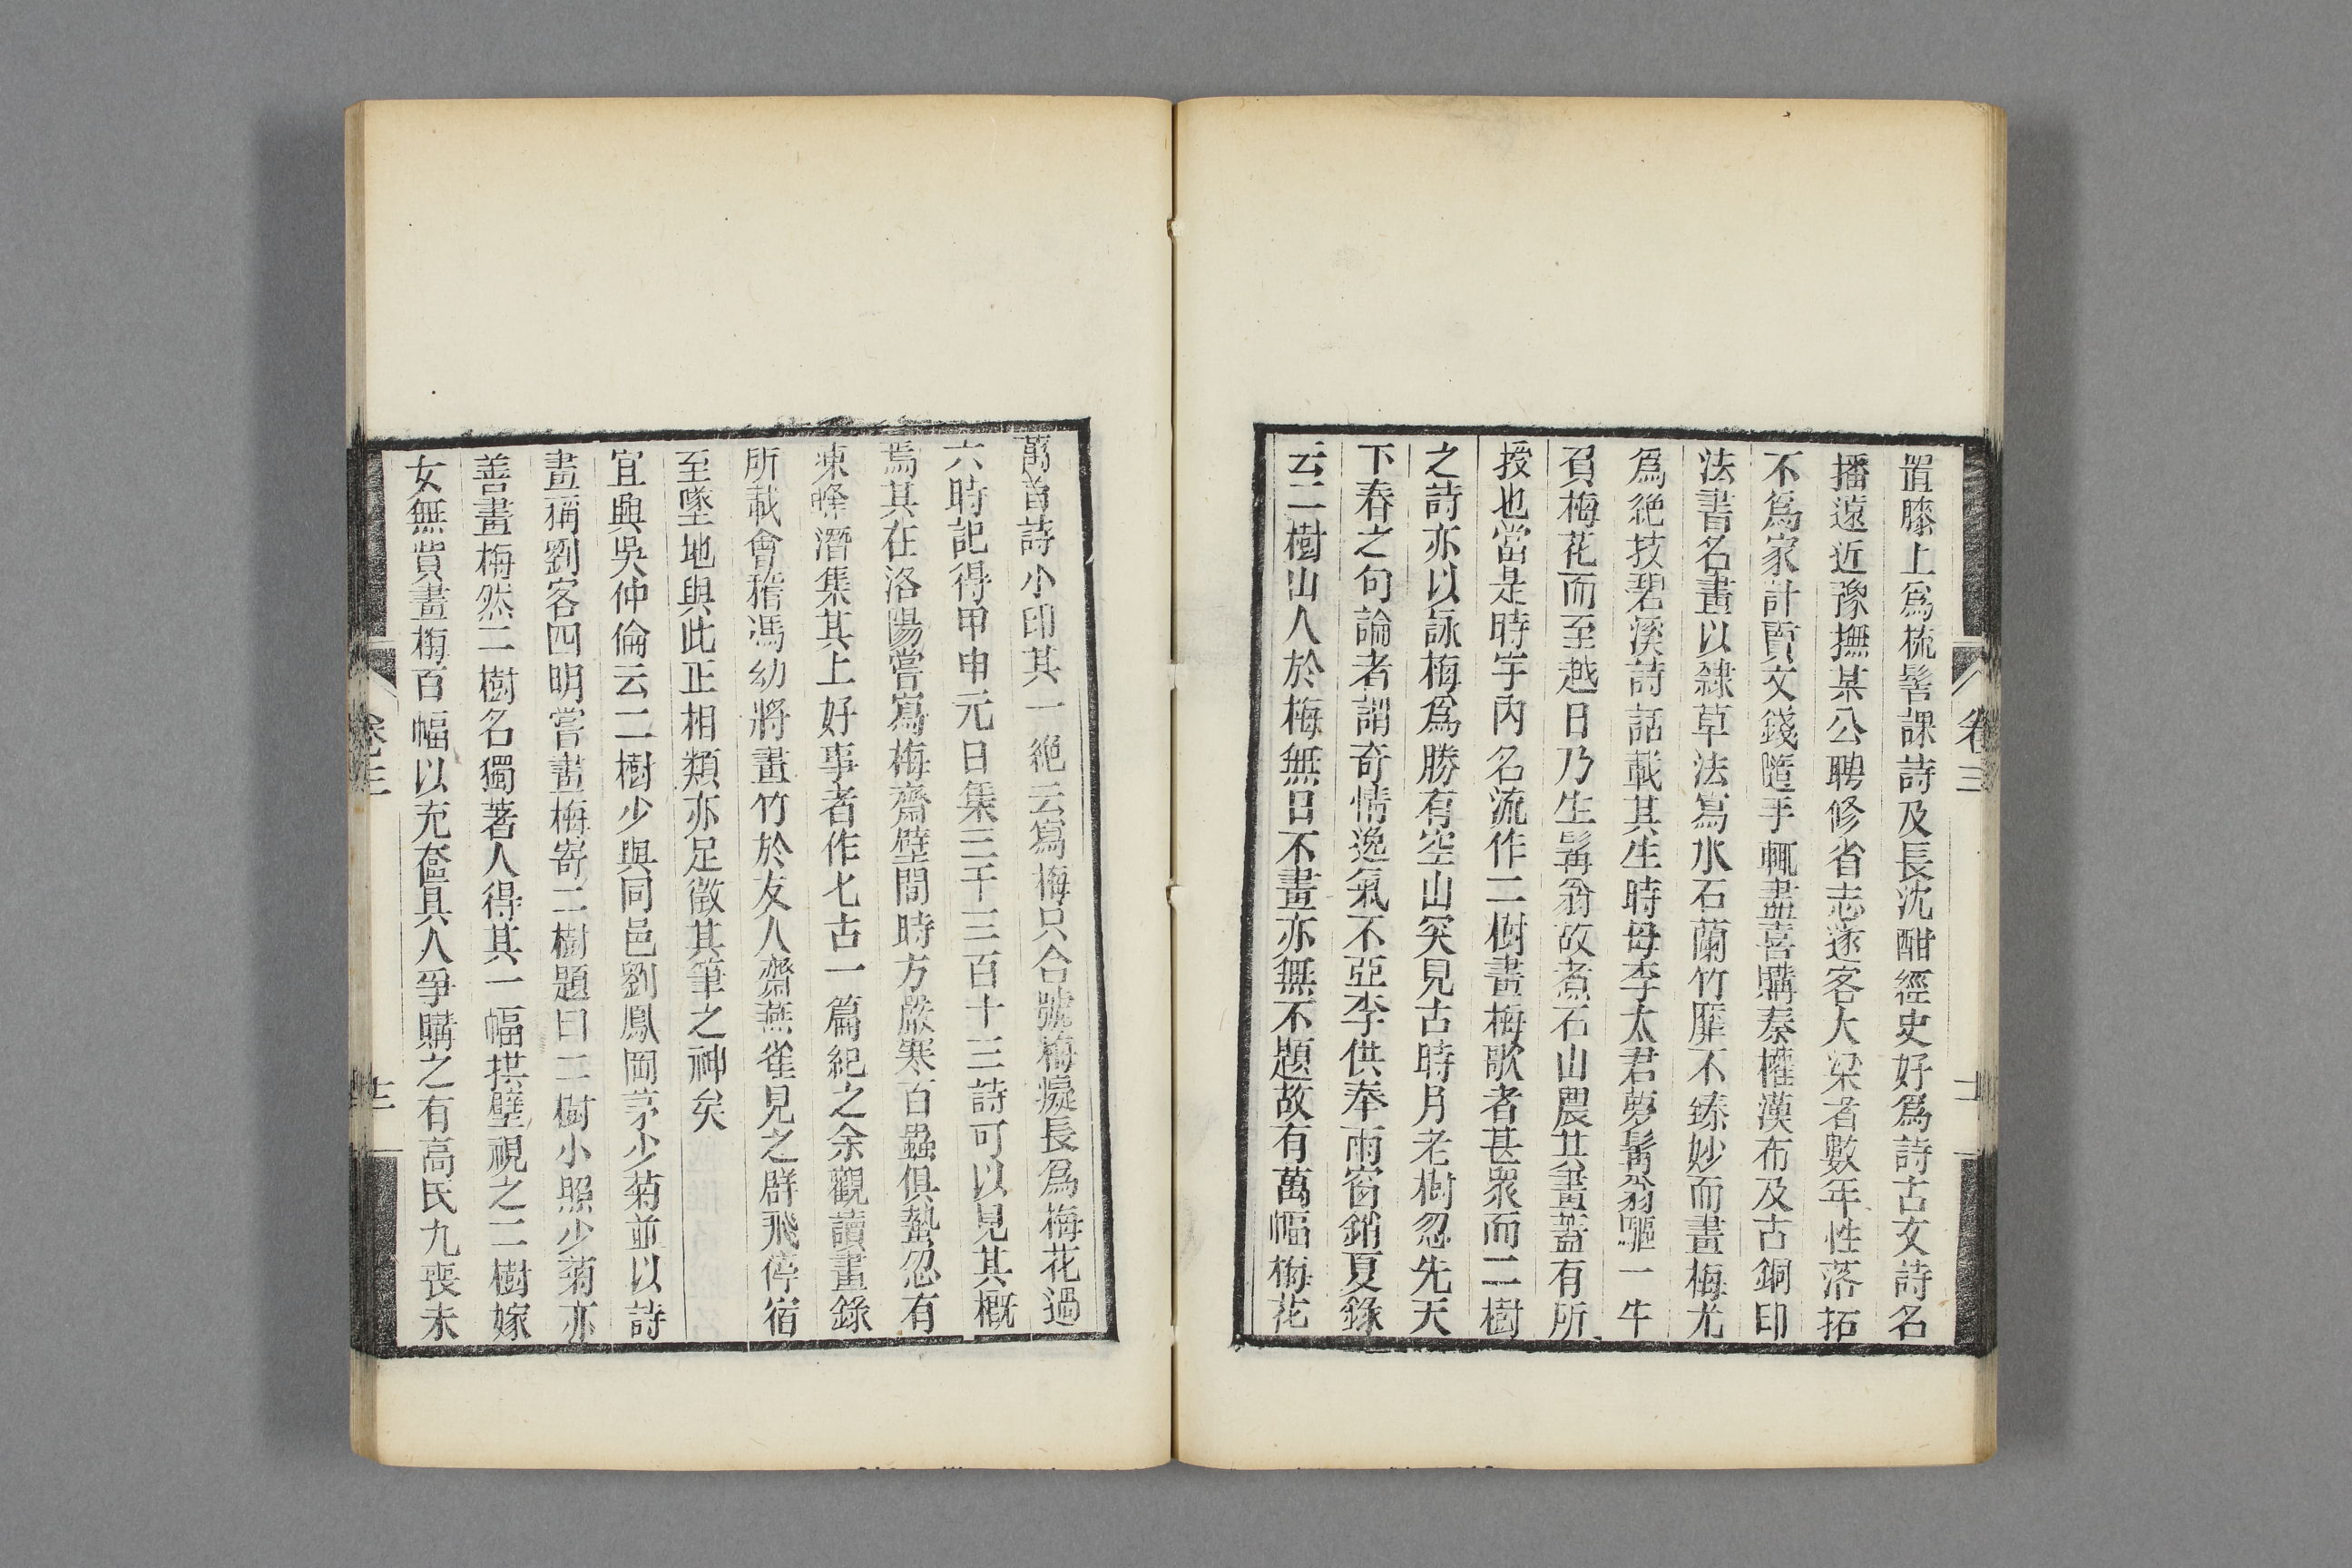 置膝上爲梳髻課詩及長沈酣經史好爲詩古文詩名
播遠近豫撫某公聘修省志遂客大梁者數年性落拓
不爲家計賣文錢隨手輒盡喜購秦權漢布及古銅印
法書名畫以隸草法寫水石蘭竹靡不臻妙而畫梅尤
爲絶技碧溪詩話載其生時母李太君夢髯翁驅一牛
負梅花而至越日乃生髯翁故煮石山農其畫蓋有所
授也當是時宇內名流作二樹畫梅歌者甚眾而二樹
之詩亦以詠梅爲勝有空山突見古時月老樹忽先天
下春之句論者謂奇情逸氣不亞李供奉雨窗銷夏錄
云二樹山人於梅無日不畫亦無不題故有萬幅梅花
卷三
十一
萬首詩小印其一絕云寫梅只合號梅癡長爲梅花過
六時記得甲申元日集三千三百十三詩可以見其概
焉其在洛陽嘗寫梅齋壁間時方嚴寒百蟲俱蟄忽有
凍蜂潛集其上好事者作七古一篇紀之余觀讀畫錄
所載會稽馮幼將畫竹於友人齋燕雀見之辟飛停宿
至墜地與此正相類亦足徵其筆之神矣
宜興吳仲倫云二樹少與同邑劉鳳岡茅少菊並以詩
畫稱劉客四明嘗畫梅寄二樹題曰二樹小照少菊亦
善畫梅然二樹名獨著人得其一幅拱壁視之二樹嫁
女無貲畫梅百幅以充奩具人爭購之有高氏九喪未
卷三